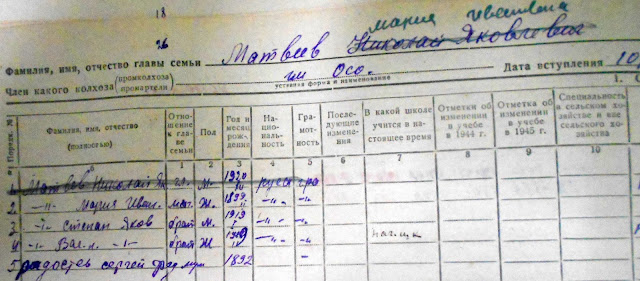 18
26
Мария Ивановна
Фамилия, имя, отчество главы семьи Матвеев Николай Яковлевич
Член какого колхоза (промколхоза промартели) им Осо.
уставная форма и наименование
Дата вступления 10
I. С
№ Порядк. Фамилия, имя, отчество (полностью) Отношение к главе семьи Пол Год и месяц рождения Национальность Грамотность Последующие изменения В какой школе учится в настоящее время Отметки об изменении в учебе в 1944 г. Отметка об изменении в учебе в 1945 г. Специальность в сельском хозяйстве и вне сельского хозяйства
2 3 4 5 6 7 8 9 10
1 Матвеев Николай Як гл. м. 1920 русс гра
2 -"- Мария Иван. мат. ж. 1899 -"- -"-
3 -"- Степан Яков брат м. 1919 -"- -"-
4 -"- Вас.л. -"- брат ж 1929 -"- -"- нач.шк
5 Сергей 1892 -